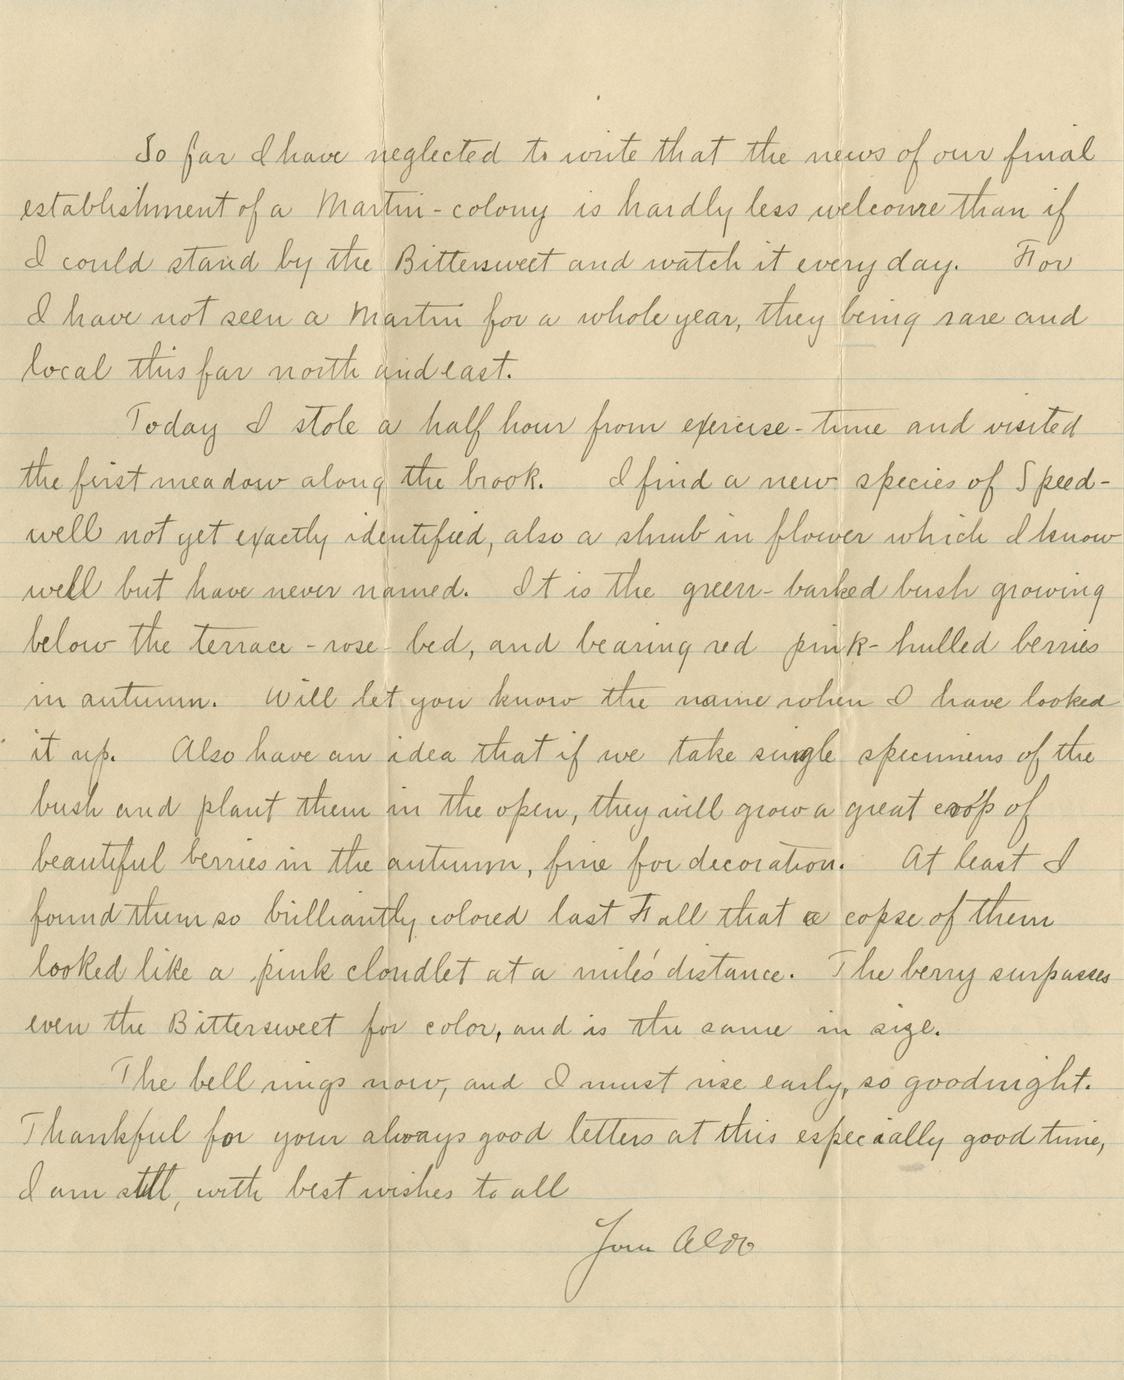 So far I have neglected to write that the news of our final
establishment of a Martin-colony is hardly less welcome than if
I could stand by the Bittersweet and watch it every day. For
I have not seen a Martin for a whole year, they being rare and
local this far north and east.
Today I stole a half hour from exercise-time and visited
the first meadow along the brook. I find a new species of Speed-
well not yet exactly identified, also a shrub in flower which I know
well but have never named. It is the green-barked bush growing
below the terrace-rose-bed, and bearing red pink-hulled berries
in autumn. Will let you know the name when I have looked
it up. Also have an idea that if we take single specimens of the
bush and plant them in the open, they will grow a great crop of
beautiful berries in the autumn, fine for decoration. At least I
found them so brilliantly colored last Fall that a copse of them
looked like a pink cloudlet at a mile's distance. The berry surpasses
even the Bittersweet for color, and is the same in size.
The bell rings now, and I must rise early, so goodnight.
Thankful for your always good letters at this especially good time,
I am still, with best wishes to all
Your Aldo